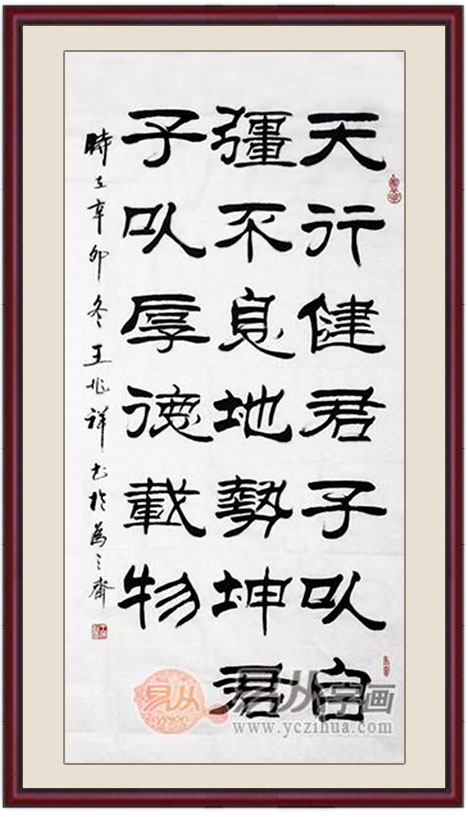 天行健君子以自
彊不息地勢坤君
子以厚德載物
時在辛卯冬王兆祥书於為之齋
易从
易从字画
www.yczihua.com